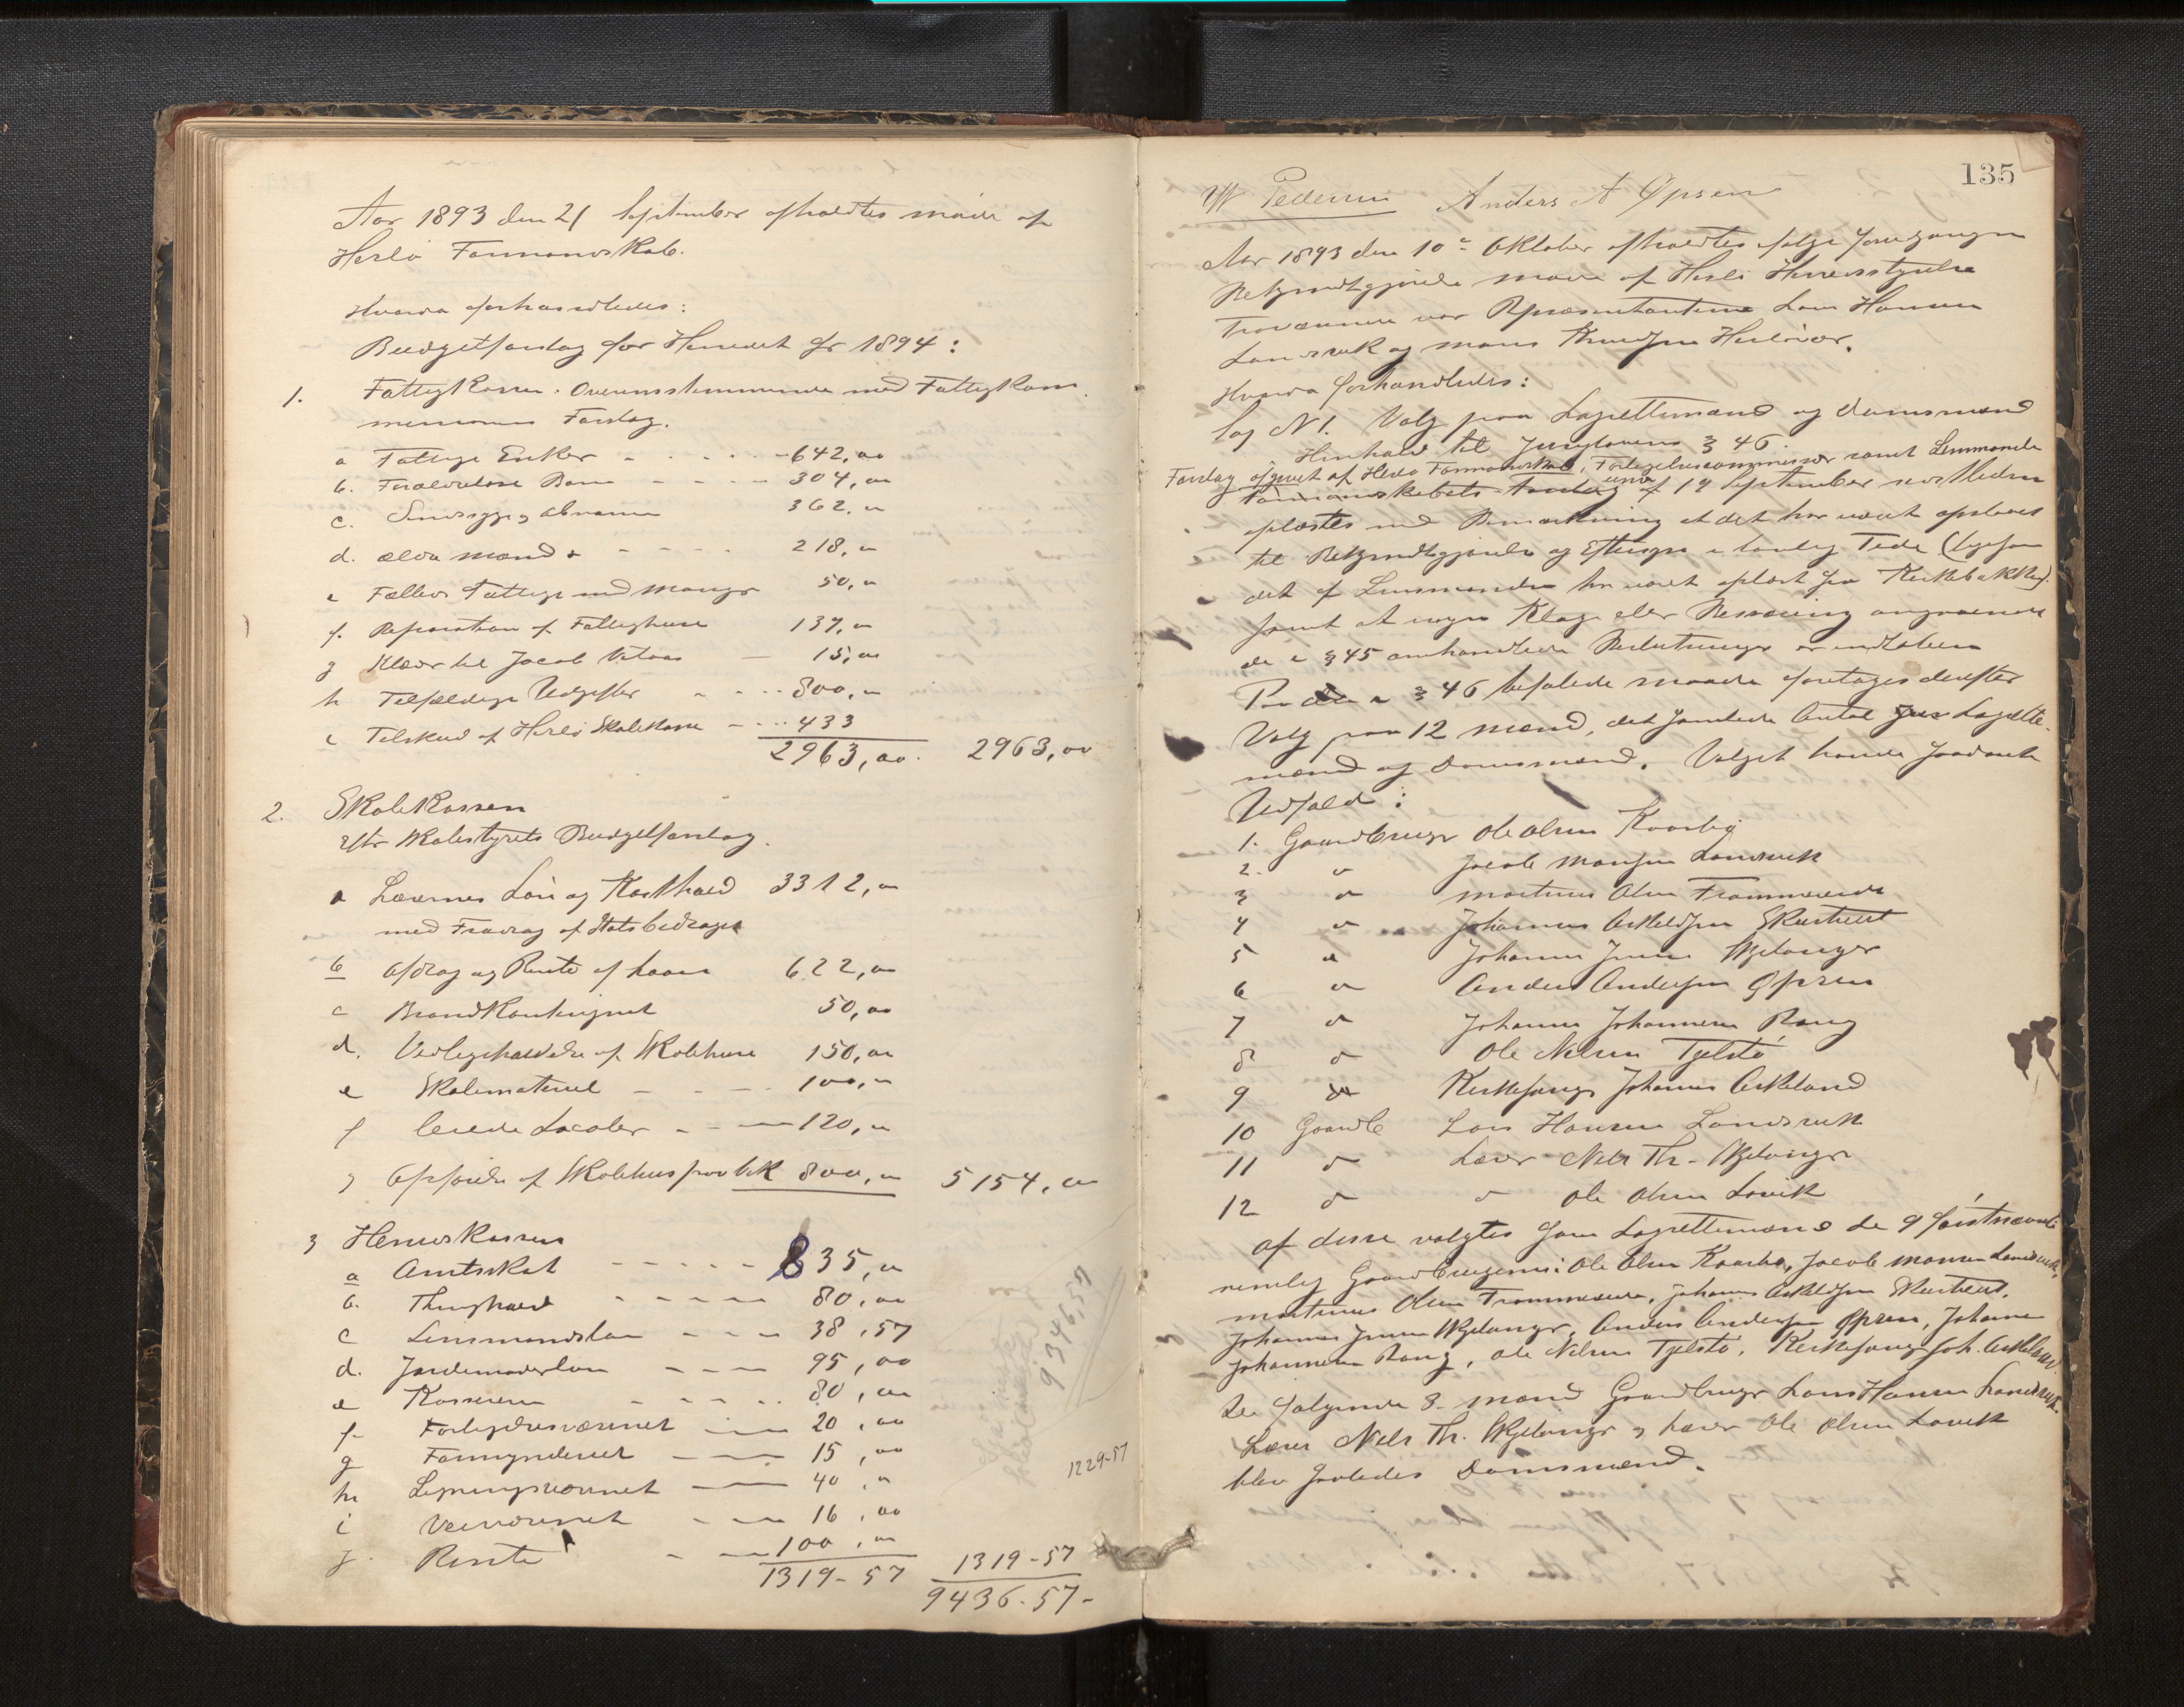 Aar 1893 den 21 September afholdtes möde af
Herlö Formandskab.
Hvorda forhandledes:
Budgetforslag for Herredet for 1894:
1. Fattigkassen. Overensstemmende med Fattigkom
missionens Forslag.
a Fattige Enker 642,00
b. Forældrelöse Börn 304,00
c. Sindssyge Abnorme 362,00
d. ældre Mænd 218,00
e Fælles Fattige med Manger 50,00
f. Reparation af Fattighuse 139,00
g Klæder til Jacob 15,00
h Tilfældige Udgifter 800,00
i Tilskud af Herlö Skolekasse 433
2963,00. 2963,00
2. Skolekassen
Efter Skolestyrets Budgetforslag.
a Lærernes Lön og Kosthold 3312,00
med Fradrag af Statsbedraget
b Afdrag og Rente af Laan 622,00
c Brandkontingent 50,00
d. Vedligeholdelse af Skolehuse 150,00
e Skolemateriel 100,00
f Leiede Locoler 120,00
g Opförelse af Skolehus paa 800,00 5154,00
3 Herredskassen
a Amtskat 835,00
b. Thinghold 80,00
c Lensmandslön 38,57
d. Jordemoderlön 95,00
e Kassereren 80,00
f- Forligelsesvæsenet 20,00
g Formynderiet 15,00
h Ligningsvæsenet 40,00
i Veivæsenet 16,00
j. Rente 100,00
1319-57 1319-57
9436-57-
9346,57
1229-57
135
Pedersen Anders A Opsen
Aar 1893 den 10de Oktober afholdtes ifölge foregaaende
Bekjendtgjörelse möde af Herlö Herredsstyrelse
Fraværende var Repræsentanterne Lars Hansen
Landsvik og Mons Knudsen Herlövær.
Hvorda forhandledes:
Sag N 1. Valg paa Lagrettemænd og Domsmænd
Henhold til Jurylovens § 46.
Forslag afgivet af Herlö Formandskab, Forligelseskommissær samt Lensmanden
Formandskabets Forslag af 19 September sidstleden
oplæstes med Bemærkning at det har været opslaaet
til Bekjendtgjörelse og Eftersyn i lovlig Tide (ligesom
det af Lensmanden har været oplæst fra Kirkebakken).
samt at ingen Klage eller Besværing angaaende
de i § 45 omhandlede Beslutninger er indkommen
Paa den i § 46 befalede maade foretoges derefter
Valg paa 12 mænd, det samlede Antal Lagrette-
mænd og Domsmænd. Valget havde saadant
Udfald:
1. Gaardbruger Ole Olsen Kaarbö
2. " Jacob Monsen Landsvik
3 " Martinus Olsen Frommereide
4 " Johannes Askeldsen Skurtveit
5 " Johannes Jensen Mjelanger
6 " Anders Andersen Opsen
7 " Johannes Johannesen Rong
8 " Ole Nilsen Tjeldstö
9 " Kirkesanger Johannes Askeland
10 Gaardb Lars Hansen Landsvik
11 " Lærer Nils Th. Mjelanger
12 " " Ole Olsen Lovik
Af disse valgtes som Lagrettemænd de 9 förstnævnte
nemlig Gaardbrugerne: Ole Olsen Kaarbö, Jacob Monsen Landsvik,
Martinus Olsen Frommereide, Johannes Askeldsen Skurtveit,
Johannes Jensen Mjelanger, Anders Andersen Opsen, Johannes
Johannesen Rong, Ole Nilsen Tjeldstö, Kirkesanger Joh. Askeland.
De fölgende 3 mænd Gaardbruger Lars Hansen Landsvik
Lærer Nils Th. Mjelanger og Lærer Ole Olsen Lovik
blev saaledes Domsmænd.